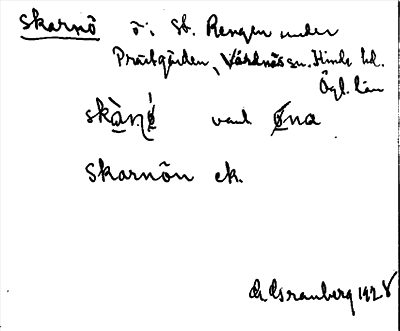 Skarnö ö i St. Rengen under
Prästgården, Vårdnäs sn. Kinda hd.
Ögl. län
skànǿ vanl. öna
Skarnön ek.
G. Granberg 1928